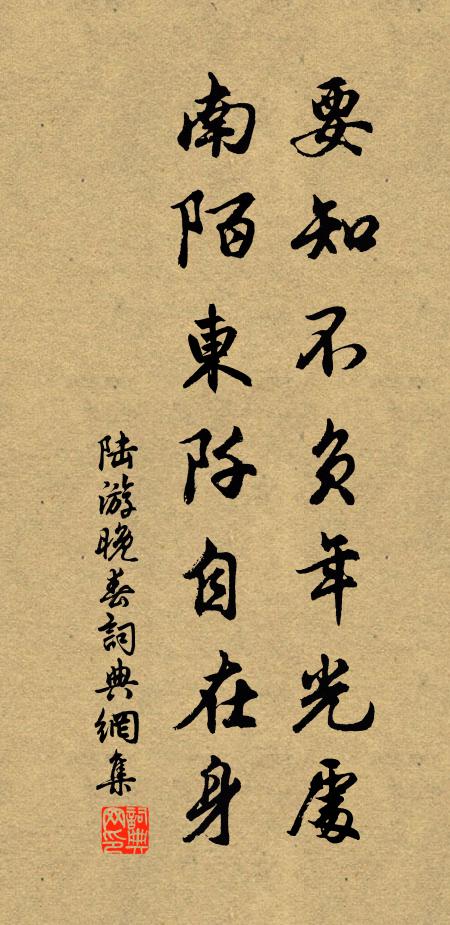 要知不负年光處
南陌東阡自在身
陆游晚春詞典網集
詞典网印